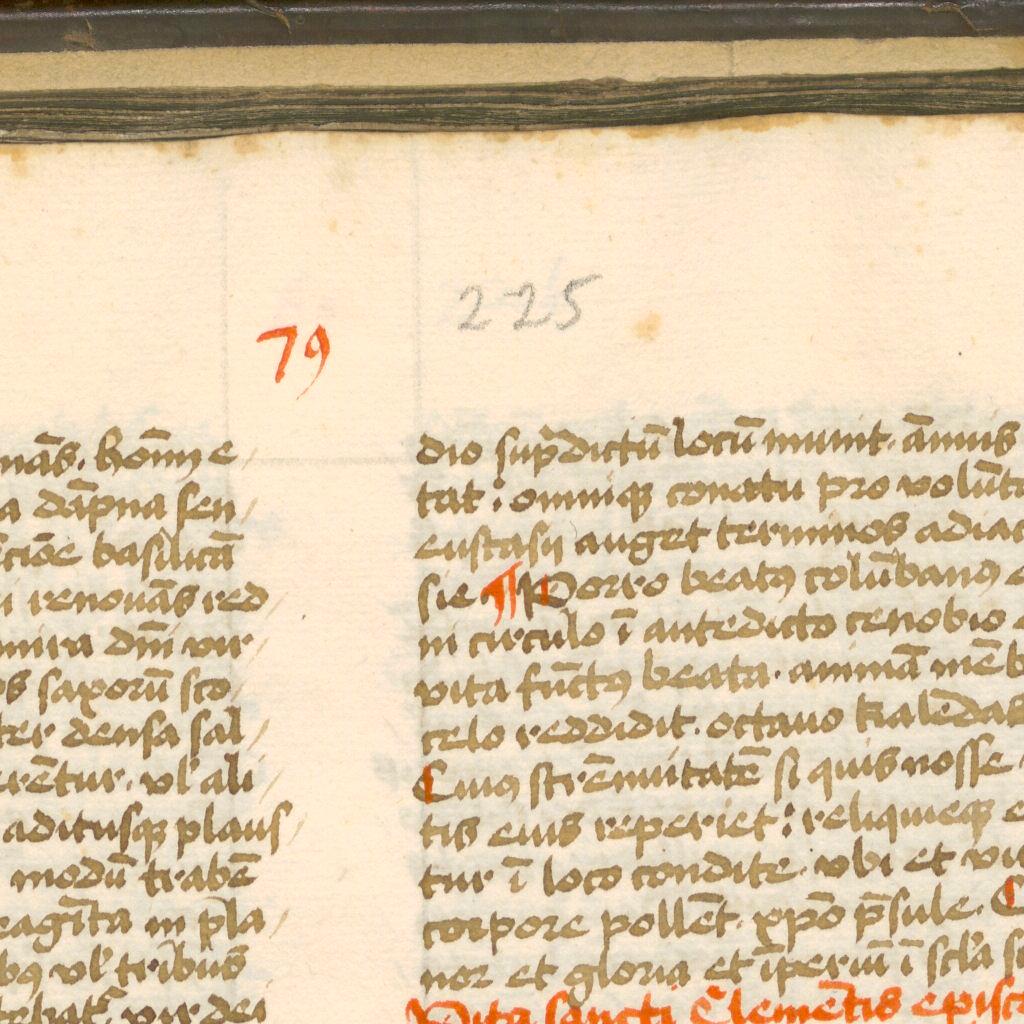 225
79
nās. hoīm e
a dāpna sen
ctiōe basilicā
renouās red
mira dnī vir
saxorū sco
ter densa sal
rētur. vl' ali
aditusqꝫ plaus
modū trabē
eagīta in pla
bꝰ vl' tribus
vir dei
dio sup̄dictū locū munit. ānuis
tat: omniqꝫ conatu pro volūta
eustasij auget terminos adiac
sie ¶ Porro beatꝰ colūbanꝰ e
ni circulo ī antedicto cenobio
vita fūctꝰ beata. animā mēb
celo reddidit. octauo kalēdas
Cuiꝰ strēnuitatē si quis nosse
tis eius reperiet: reliquieqꝫ e
tur ī loco condite. vbi et vir
corpore pollēt. xpō p̄sule. C
nor et gloria et īperiū ī scl'a s
Vita sancti Clemētis episc